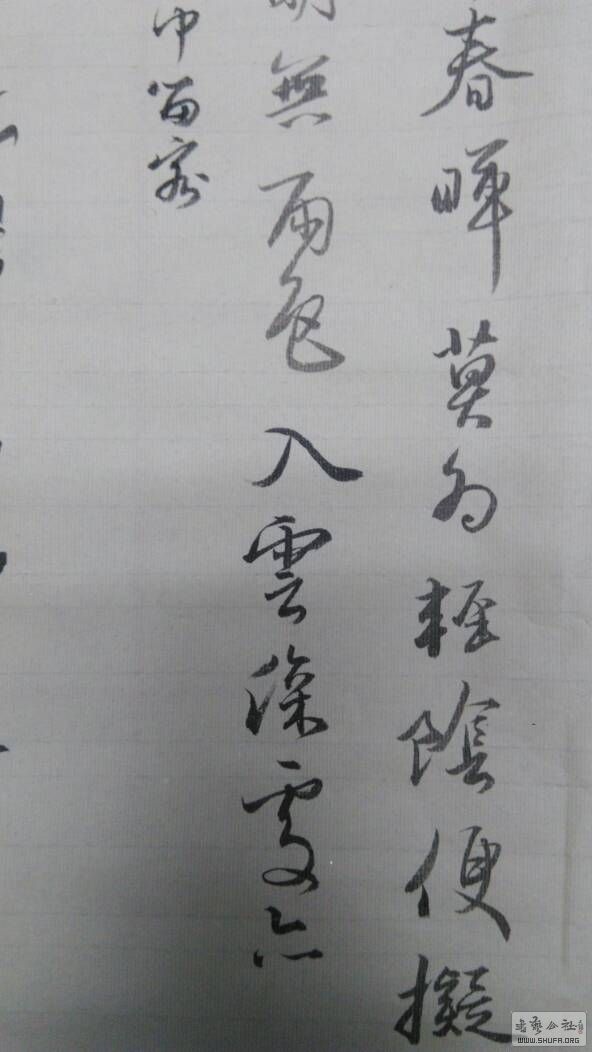 春暉莫為輕陰便擬
明無雨色入雲深處亦
中留客
書藝公社
WWW.SHUFA.ORG